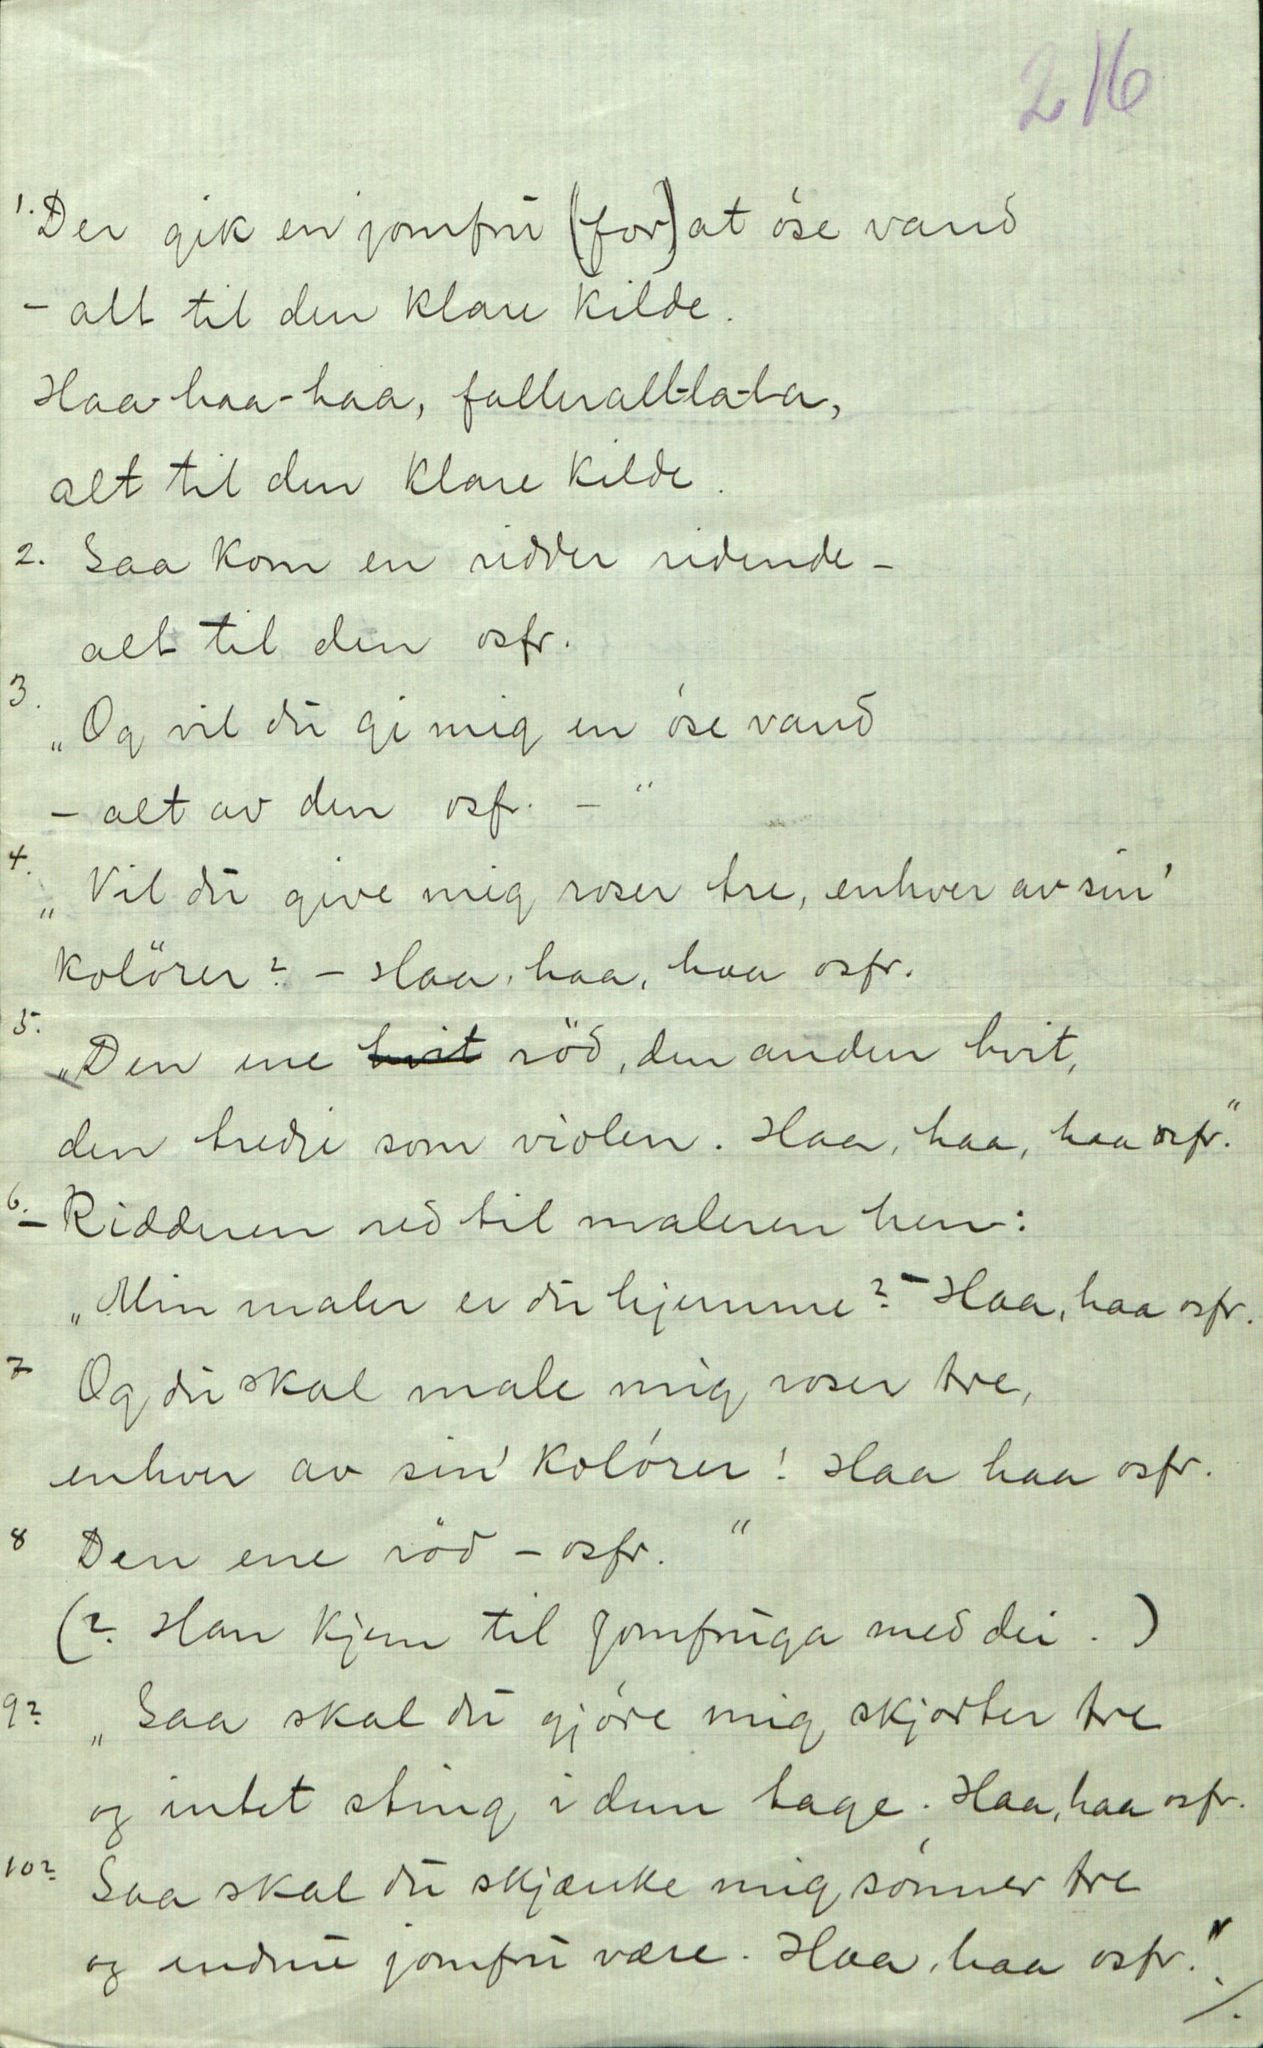 216
1. Der gik en jomfru (for) at öse vand
- alt til den klare kilde.
Haa-haa-haa, falleralt-la-la,
alt til den klare kilde.
2. Saa kom en ridder ridende -
alt til den osfr.
3. „Og vil du gi mig en öse vand
- alt av den osfr. - "
4. „Vil du give mig roser tre, enhver av sin'
kolörer? - Haa, haa, haa osfr.
5. „Den ene hvit röd, den anden hvit,
den tredje som violen. Haa, haa, haa osfr."
6. - Ridderen red til maleren hen:
„Min maler er du hjemme? - Haa, haa osfr.
7 Og du skal male mig roser tre,
enhver av sin' kolörer! Haa haa osfr.
8 Den ene röd - osfr. "
(?. Han kjem til jomfruga med dei.)
9? „Saa skal du gjöre mig skjorter tre
og intet sting i dem tage. Haa, haa osfr.
10? Saa skal du skjænke mig sönner tre
og endnu jomfru være. Haa, haa osfr."